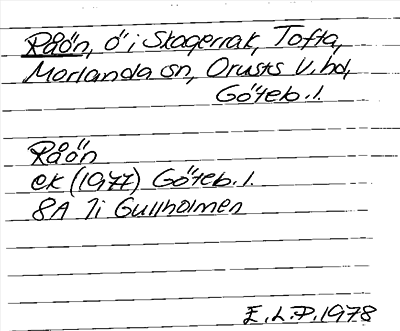 Råön, ö i Skagerrak, Tofta,
Morlanda sn, Orusts V. hd,
Göteb. l.
Råön
ek (1977) Göteb. l.
8A 7i Gullholmen
E.L.P. 1978